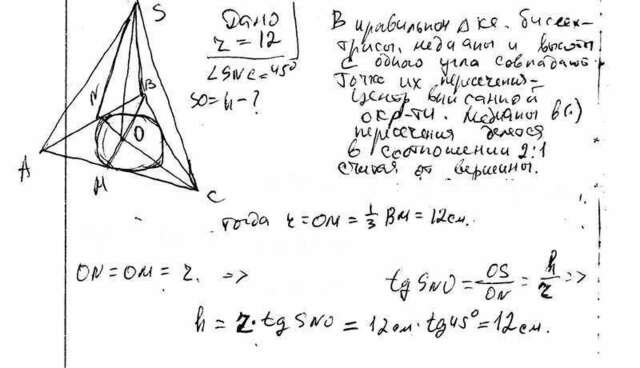 S
Дано
r = 12
∠SNC = 45°
SO = h - ?
N
B
O
A
M
C
В правильном Δке. биссек-
трисы, медианы и высоты
с одного угла совпадают.
Точка их пересечения-
Центр вписанной
окр-ти. Медианы в (.)
пересечения делятся
в соотношении 2:1
считая от вершины.
тогда r = OM = 1/3 BM = 12 см.
ON = OM = r. =>
tg SNO = OS/ON = h/r =>
h = r · tg SNO = 12 см · tg 45° = 12 см.